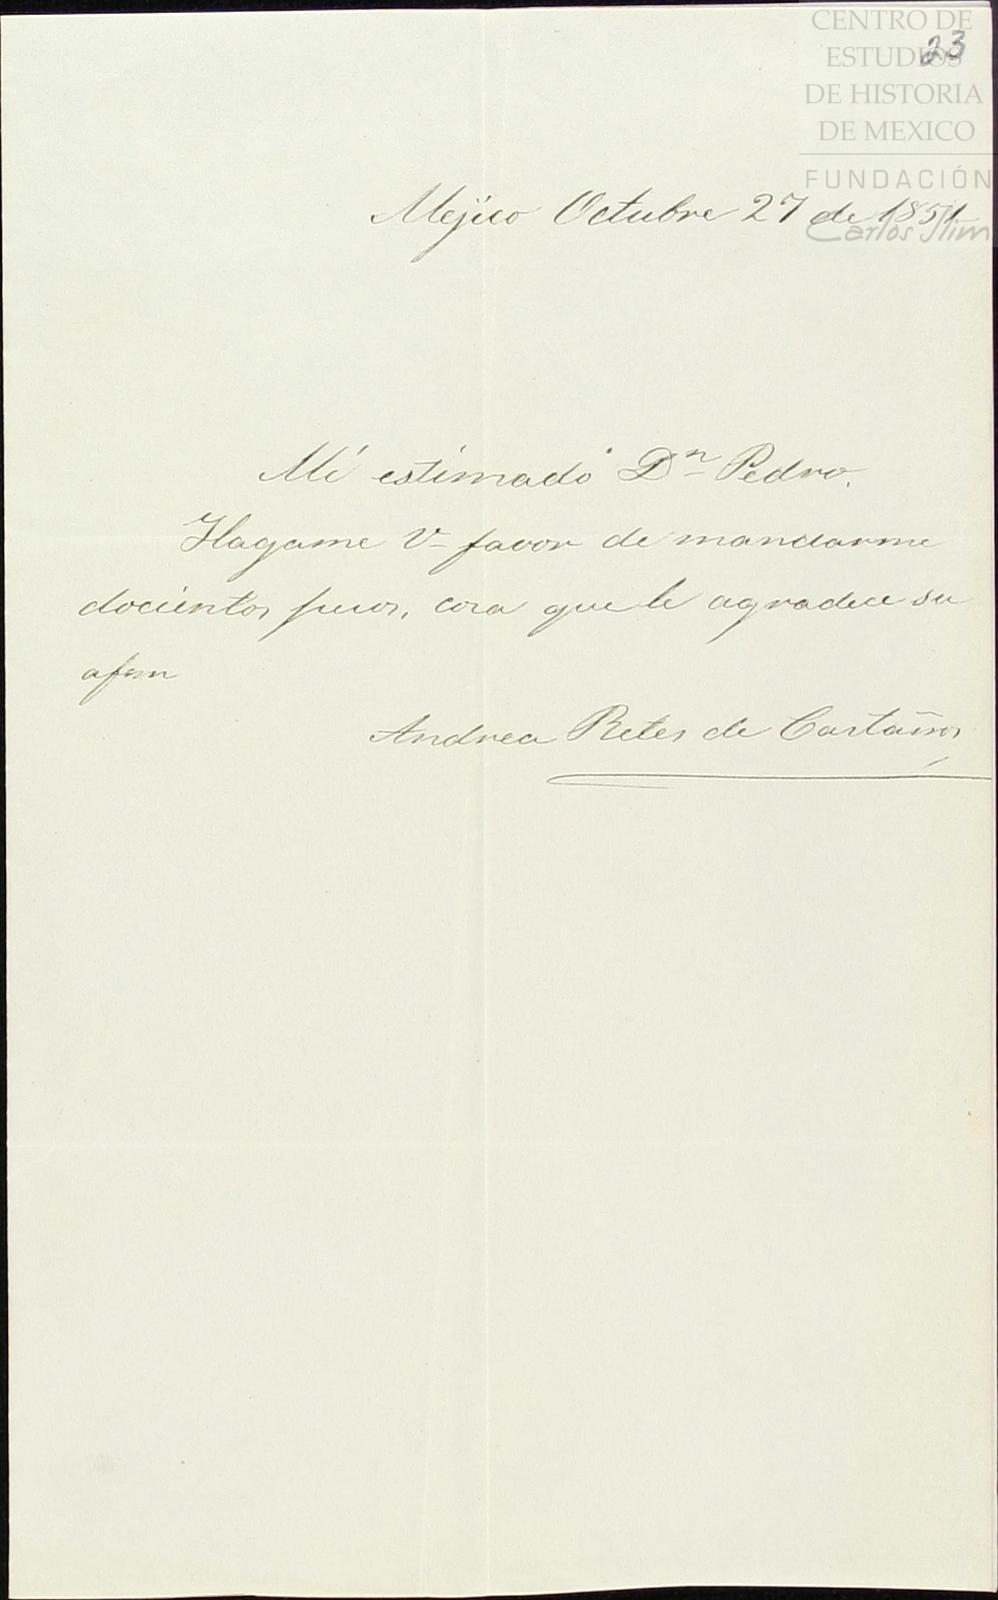 CENTRO DE
ESTUDIOS
DE HISTORIA
DE MEXICO
FUNDACIÓN
Carlos Slim
23
Mejico Octubre 27 de 1851
Mi estimado Dn Pedro.
Hagame V favor de mandarme
docientos pesos, cosa que le agradece su
afma
Andrea Retes de Castaños